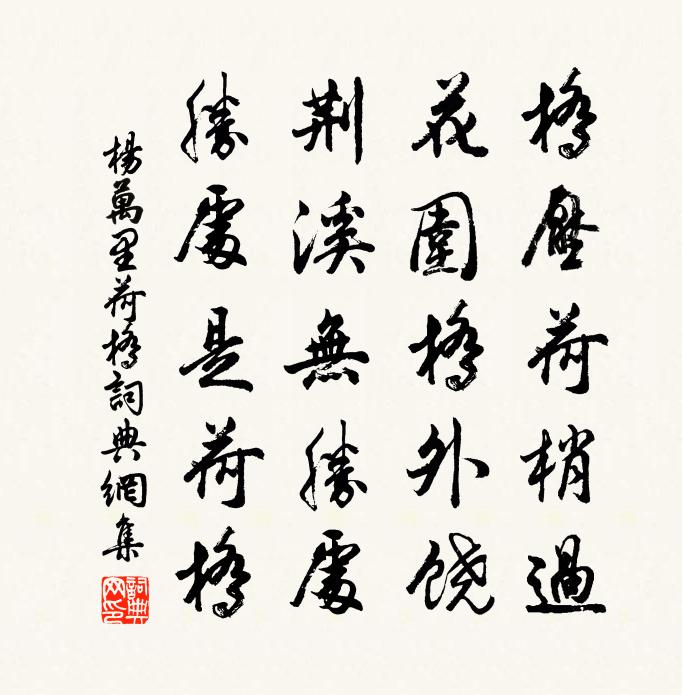 橋壓荷梢過
花圍橋外饶
荆溪無勝處
勝處是荷橋
楊萬里荷橋詞典網集
詞典網印